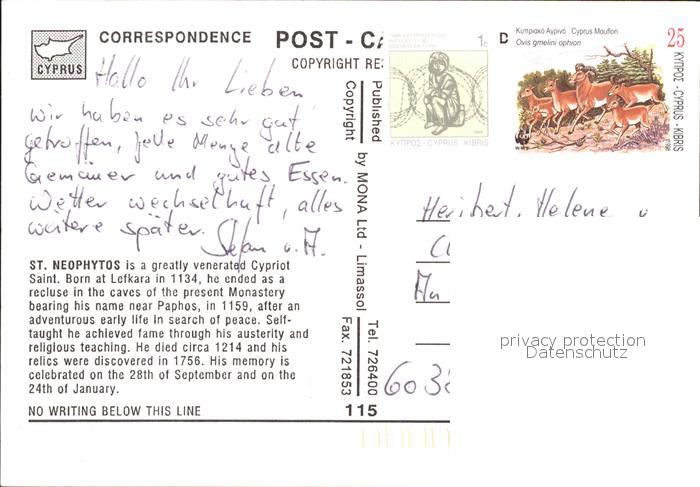 CORRESPONDENCE
POST - CA
CYPRUS
COPYRIGHT RE
Hallo Ihr Lieben
wir haben es sehr gut
getroffen, jede Menge alte
Gemäuer und gutes Essen.
Wetter wechselhaft, alles
weitere später.
Stefan u. A.
ST. NEOPHYTOS is a greatly venerated Cypriot
Saint. Born at Lefkara in 1134, he ended as a
recluse in the caves of the present Monastery
bearing his name near Paphos, in 1159, after an
adventurous early life in search of peace. Self-
taught he achieved fame through his austerity and
religious teaching. He died circa 1214 and his
relics were discovered in 1756. His memory is
celebrated on the 28th of September and on the
24th of January.
NO WRITING BELOW THIS LINE
Published by MONA Ltd - Limassol Tel. 726400
Copyright Fax. 721853
115
1c
ΚΥΠΡΟΣ - CYPRUS KIBRIS
Κυπριακό Αγρινό · Cyprus Mouflon
Ovis gmelini ophion
25
ΚΥΠΡΟΣ - CYPRUS - KIBRIS
WWF
1998
Heribert. Helene u
603
privacy protection
Datenschutz